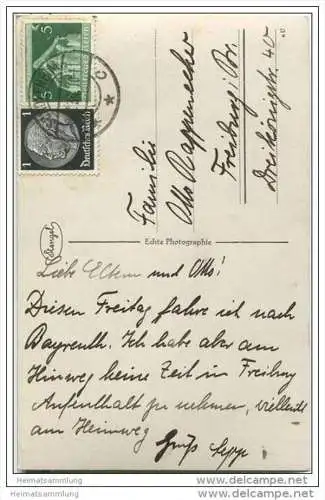 5
5
1
Deutsches Reich
C
Familie
Otto Rappenecker
Freiburg i. Br.
Dreikönigstr. 40
Stengel
Echte Photographie
Liebe Eltern und Otto!
Diesen Freitag fahre ich nach
Bayreuth. Ich habe aber am
Hinweg keine Zeit in Freiburg
Aufenthalt zu nehmen, vielleicht
am Heimweg
Gruß Sepp
Heimatsammlung
Heimatsammlung
www.delcampe.net